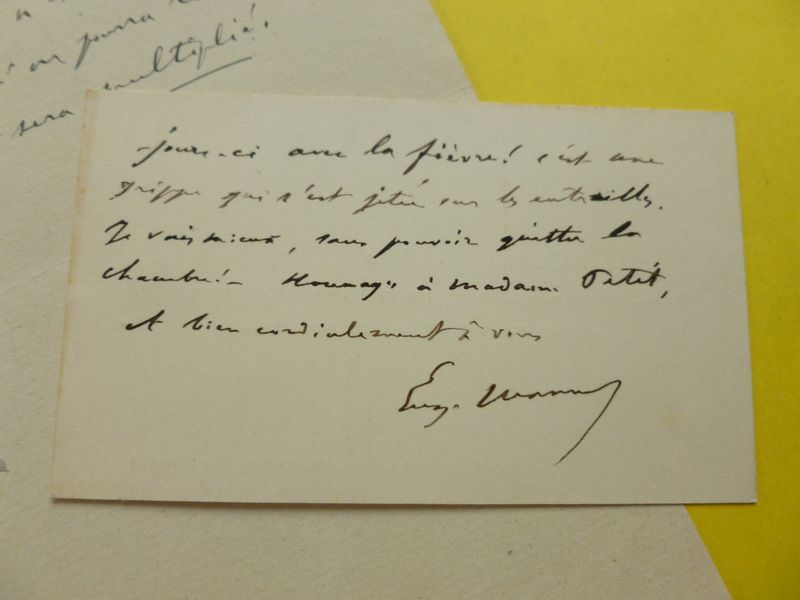 on pourra
sera multiplié.
-jours-ci avec la fièvre! c'est une
grippe qui s'est jetée sur les entrailles.
Je vais mieux, sans pouvoir quitter la
chambre! - Hommages à Madame Petit,
et bien cordialement à vous
Eug. Manuel